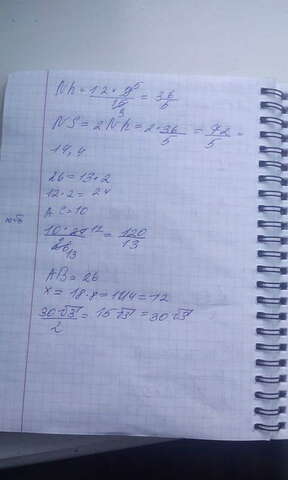 Nh = 12 · 9 / 15 = 36 / 5
NS = 2Nh = 2 · 36 / 5 = 72 / 5 =
14,4
26 = 13 · 2
12 · 2 = 24
AC = 10
10 · 24 12 / 26 13 = 120 / 13
AB = 26
x = 18 · 8 = 144 = 12
30√3 / 2 = 15√3 = 30√3